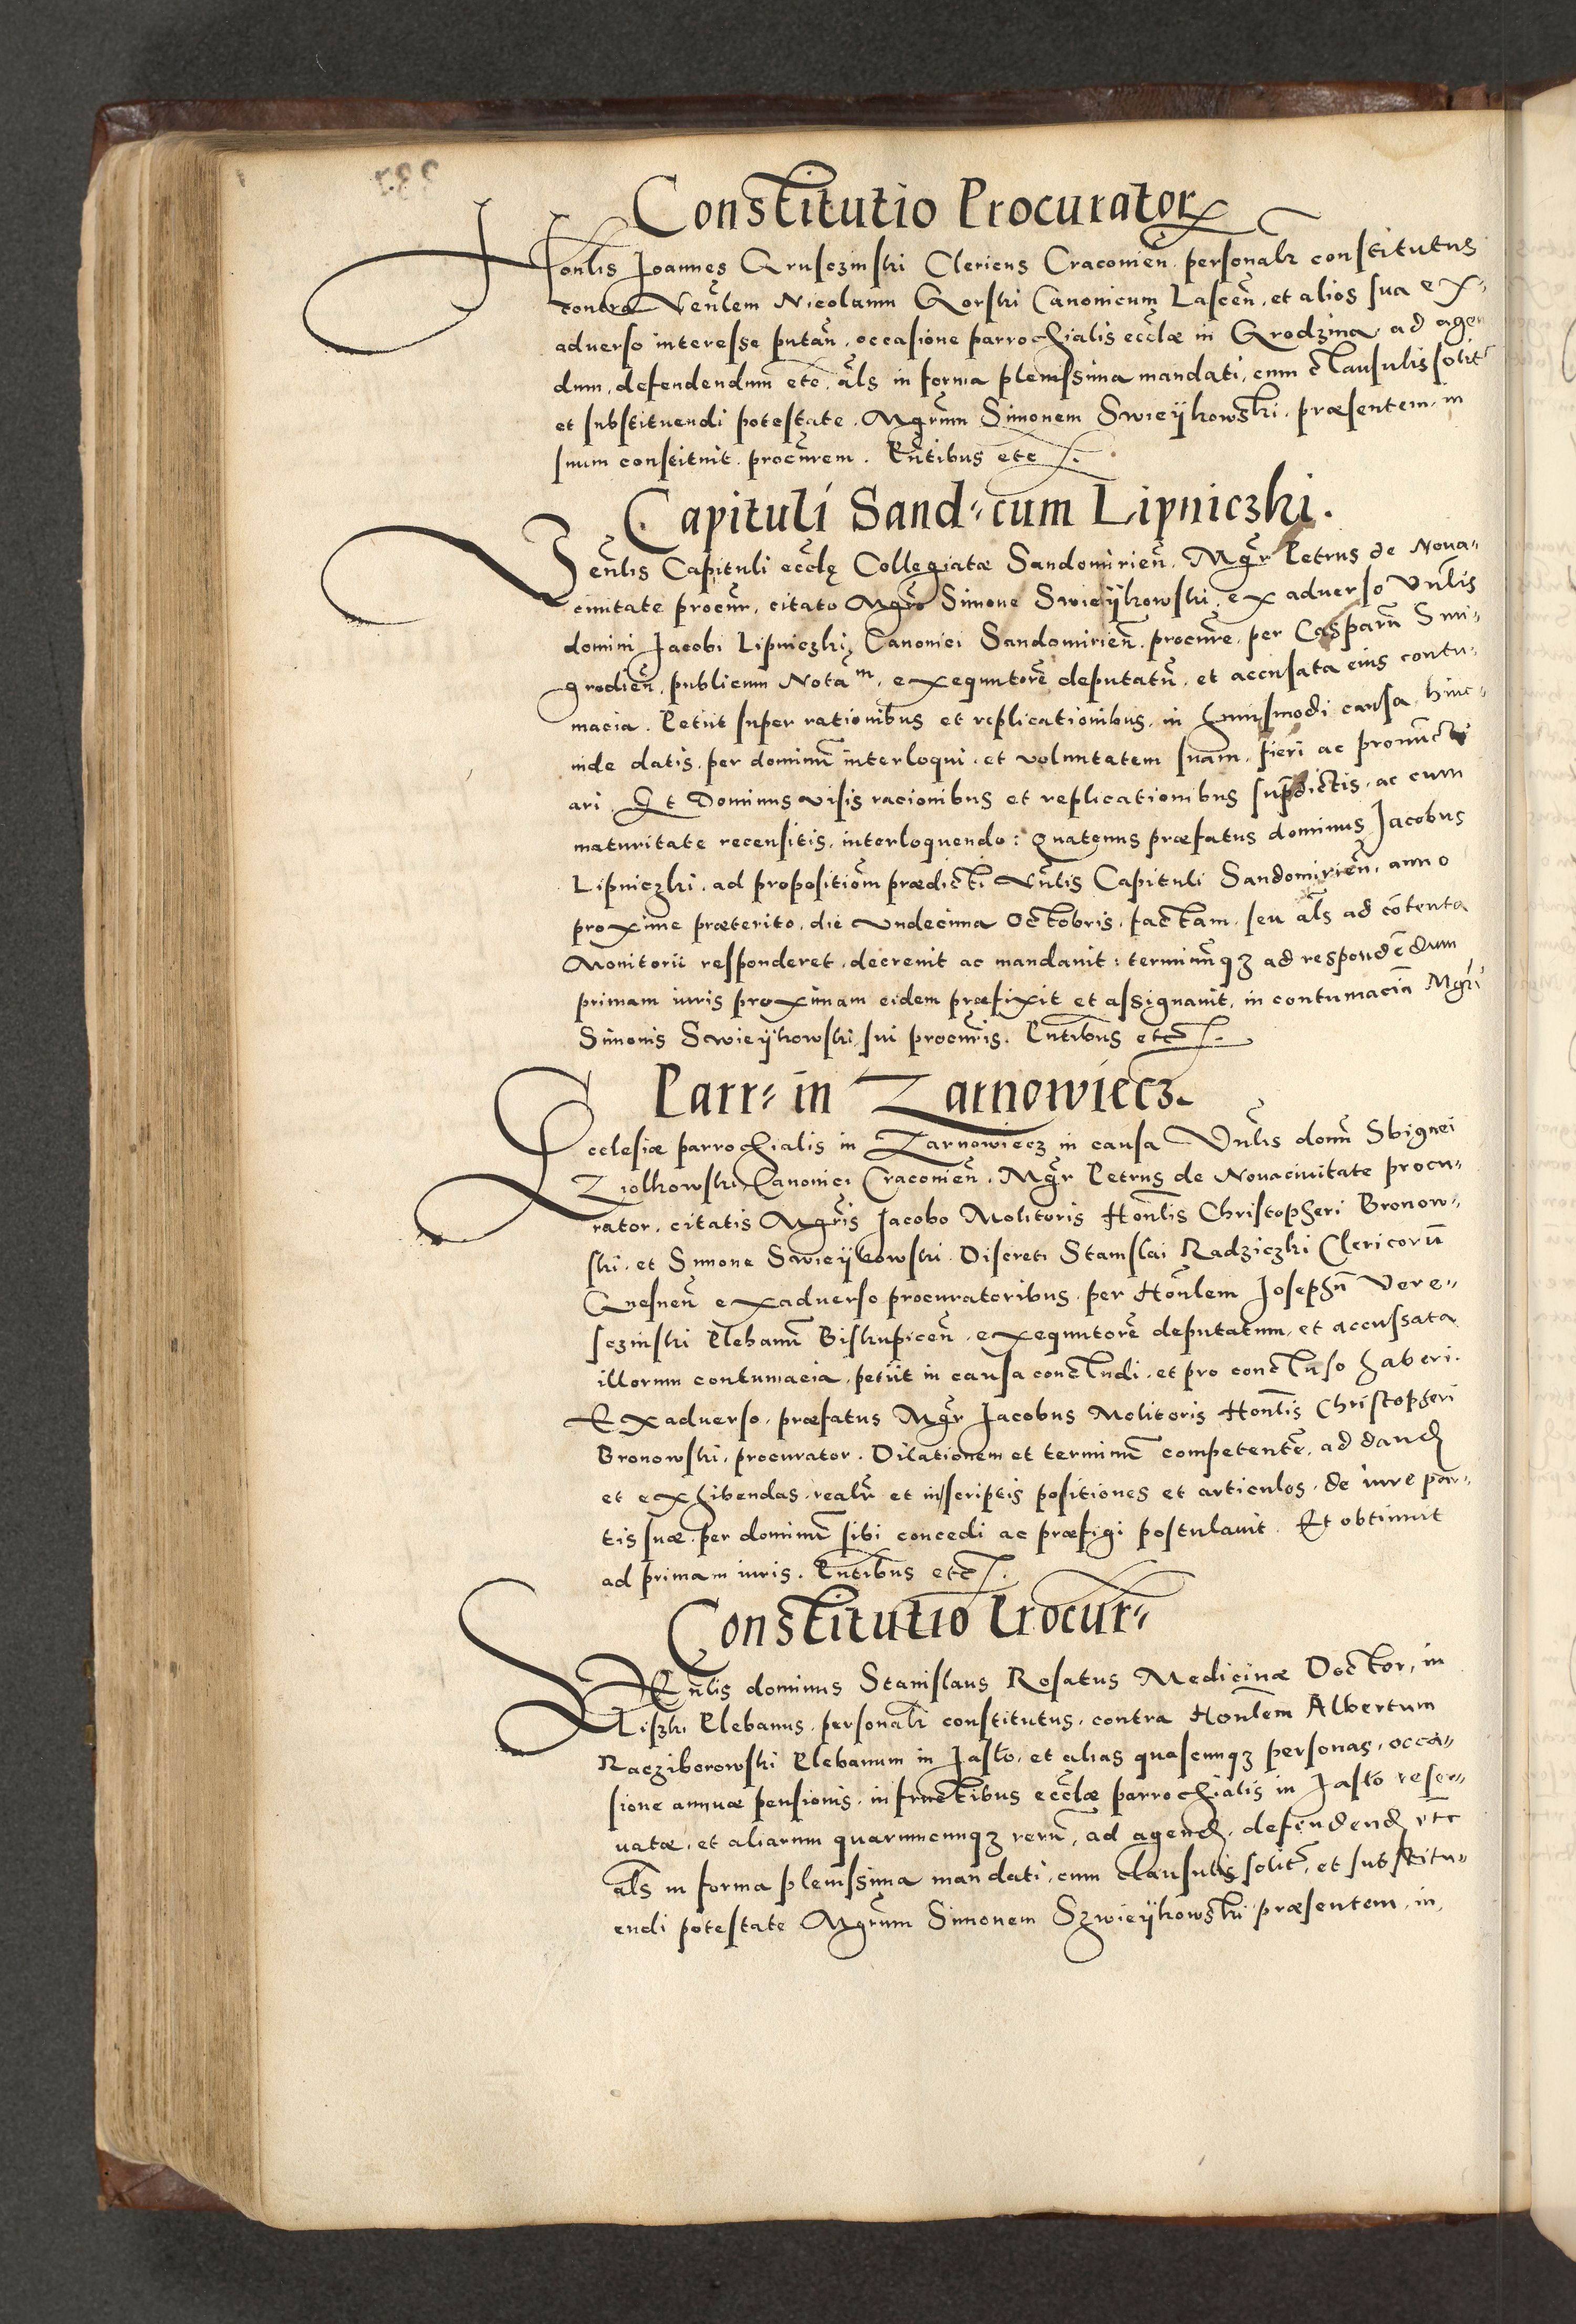 Constitutio Procurator
Honlis Joannes Gruszinski Clericus Cracovien̄. personalr̄ constitutus
contra Venlem Nicolaum Gorski Canonicum Lascen̄. et alios sua ex
adverso interesse putan̄. occasione parrochialis ecclæ in Grodzina, ad agen
dum, defendendum etc. al̄s in forma plenissima mandati, cum clausulis solit̄
et substituendi potestate. Mgrum Simonem Swieÿkowski, præsentem, in
suum constituit procurem. Pn̄tibus etc.
Capituli Sand: cum Lipniczki.
Venlis Capituli ecclę Collegiatæ Sandomirien̄. Mgr Petrus de Nova〃
civitate procur̄, citato Mgro Simone Swieÿkowski, ex adverso Vnlis
domini Jacobi Lipniczki, Canonici Sandomirien̄. procure, per Casparū Smi〃
grodien̄. publicum Notam, exequutorē deputatū, et accusata eius contu〃
macia. Petiit super rationibus et replicationibus, in huiusmodi causa, hinc〃
inde datis, per dominū interloqui, et voluntatem suam, fieri ac pronūcti
ari. Et Dominus visis racionibus et replicationibus supdictis, ac cum
maturitate recensitis, interloquendo: Quatenus præfatus dominus Jacobus
Lipniczki, ad propositiōm prædicti Vnlis Capituli Sandomirien̄, anno
proxime præterito, die undecima Octobris, factam, seu al̄s ad cōtenta
Monitorii responderet, decrevit ac mandavit: terminūqȝ ad respondēdum
primam iuris proximam eidem præfixit et assignavit, in contumaciā Mgri
Simonis Swieÿkowski, sui procuris. Pn̄tibus etc.
Parr: in Zarnowiecz.
Ecclesiæ parrochialis in Zarnowiecz in causa Vnlis domī Sbignei
Ziolkowski, Canonici Cracovien̄. Mgr Petrus de Novacivitate procu〃
rator, citatis Mgris Jacobo Molitoris Honlis Christopheri Bronow〃
ski, et Simone Swieÿkowski Discreti Stanislai Radziczki Clericorū
Gnesnen̄ exadverso procuratoribus, per Honlem Josephū Vere〃
sczinski Plebanū Biskupicen̄. exequutorē deputatum, et accussata
illorum contumacia, petiit in causa concludi, et pro concluso haberi.
Exadverso, præfatus Mgr Jacobus Molitoris Honlis Christopheri
Bronowski, procurator. Dilationem et terminū competentē, ad dand
et exhibendas, realr̄ et inscriptis positiones et articulos, de iure par〃
tis suæ, per dominū sibi concedi ac præfigi postulavit. Et obtinuit
ad primam iuris. Pn̄tibus etc.
Constitutio Procur〃
Venlis dominus Stanislaus Rosatus Medicinæ Doctor, in
Liszki Plebanus, personalr̄ constitutus, contra Honlem Albertum
Racziborowski Plebanum in Jaslo, et alias quascunqȝ personas, occa〃
sione annuæ pensionis, in fructibus ecclæ parrochialis in Jaslo reser〃
vatæ, et aliarum quarumcunqȝ rerū, ad agend, defendend etc
al̄s in forma plenissima mandati, cum clausulis solit̄, et substitu〃
endi potestate Mgrum Simonem Szwieÿkowski præsentem, in